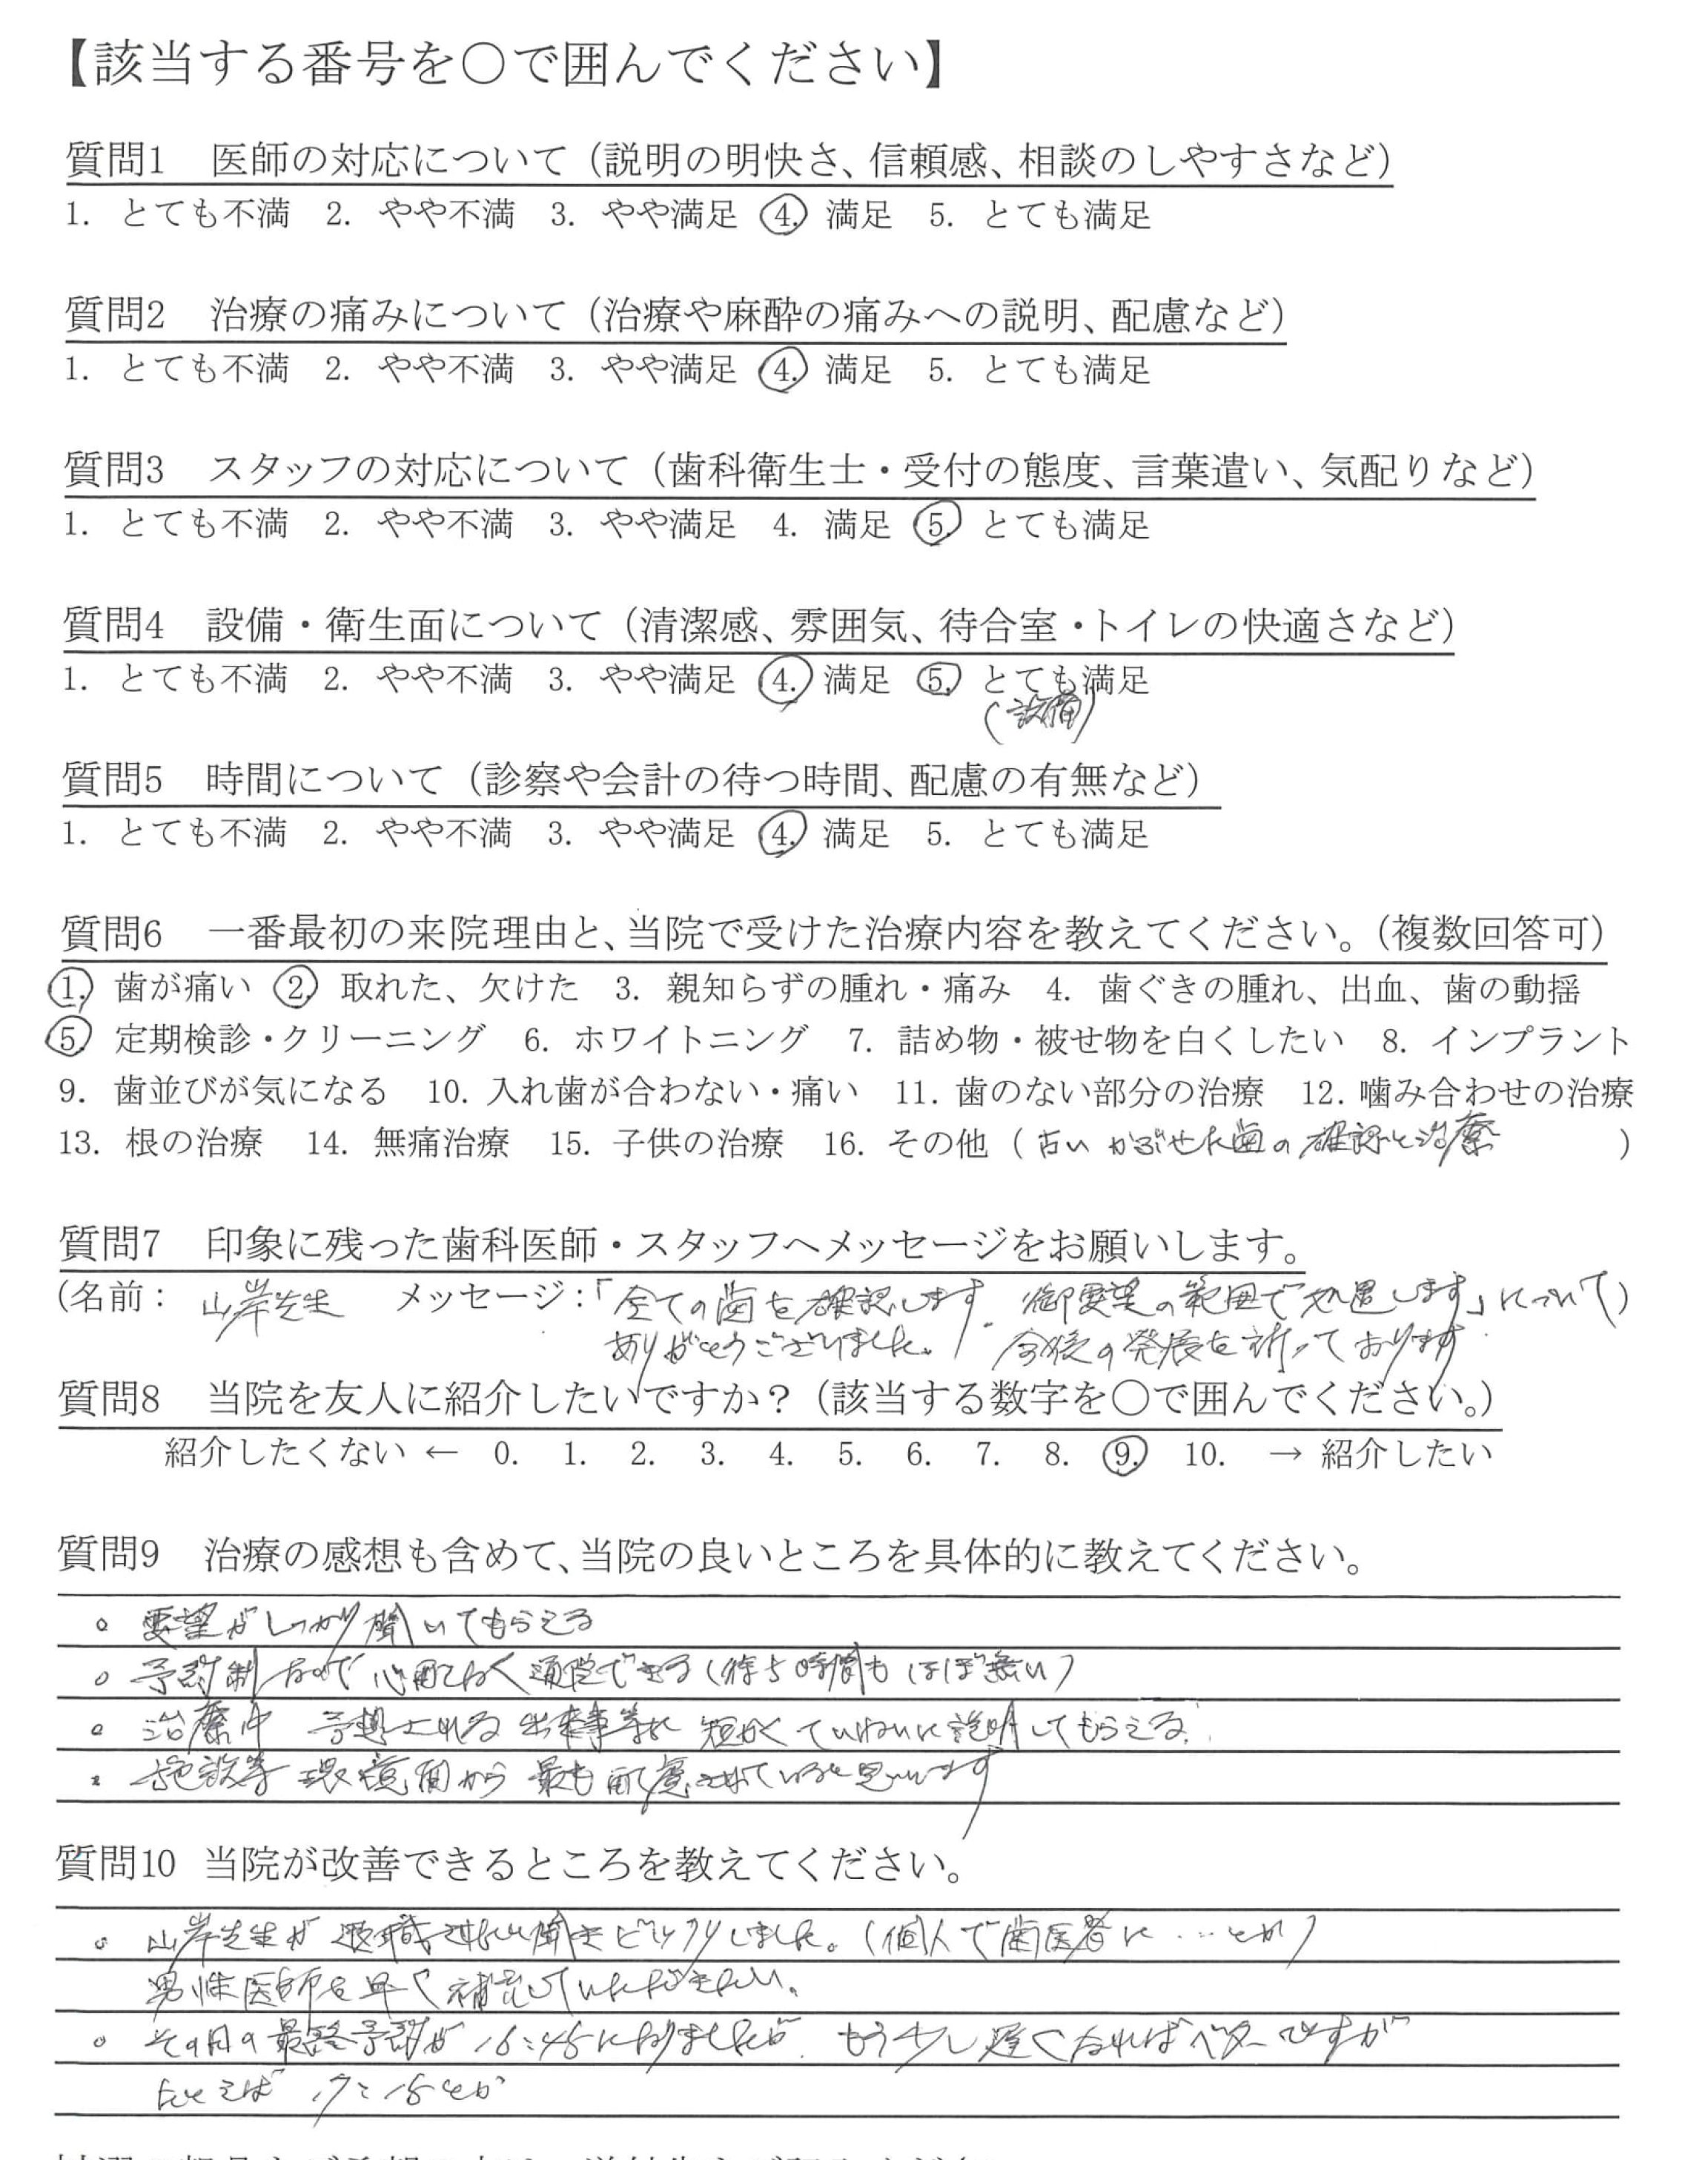 【該当する番号を○で囲んでください】
質問1　医師の対応について（説明の明快さ、信頼感、相談のしやすさなど）
1. とても不満　2. やや不満　3. やや満足　4. 満足　5. とても満足
質問2　治療の痛みについて（治療や麻酔の痛みへの説明、配慮など）
1. とても不満　2. やや不満　3. やや満足　4. 満足　5. とても満足
質問3　スタッフの対応について（歯科衛生士・受付の態度、言葉遣い、気配りなど）
1. とても不満　2. やや不満　3. やや満足　4. 満足　5. とても満足
質問4　設備・衛生面について（清潔感、雰囲気、待合室・トイレの快適さなど）
1. とても不満　2. やや不満　3. やや満足　4. 満足　5. とても満足
（設備）
質問5　時間について（診察や会計の待つ時間、配慮の有無など）
1. とても不満　2. やや不満　3. やや満足　4. 満足　5. とても満足
質問6　一番最初の来院理由と、当院で受けた治療内容を教えてください。（複数回答可）
1. 歯が痛い　2. 取れた、欠けた　3. 親知らずの腫れ・痛み　4. 歯ぐきの腫れ、出血、歯の動揺
5. 定期検診・クリーニング　6. ホワイトニング　7. 詰め物・被せ物を白くしたい　8. インプラント
9. 歯並びが気になる　10. 入れ歯が合わない・痛い　11. 歯のない部分の治療　12. 噛み合わせの治療
13. 根の治療　14. 無痛治療　15. 子供の治療　16. その他（古いかぶせた歯の確認と治療）
質問7　印象に残った歯科医師・スタッフへメッセージをお願いします。
（名前：山岸先生　メッセージ：「全ての歯を確認します。御要望の範囲で処置します」について）
ありがとうございました。今後の発展を祈っております
質問8　当院を友人に紹介したいですか？（該当する数字を○で囲んでください。）
紹介したくない ← 0. 1. 2. 3. 4. 5. 6. 7. 8. 9. 10. → 紹介したい
質問9　治療の感想も含めて、当院の良いところを具体的に教えてください。
○ 要望がしっかり聞いてもらえる
○ 予約制なので心配なく通院できる（待ち時間もほぼ無い）
○ 治療中 予想される出来事等を短かくていねいに説明してもらえる.
・ 施設等環境面から最も配慮されていると思います
質問10　当院が改善できるところを教えてください。
○ 山岸先生が退職されると聞きビックリしました。（個人で歯医者に…とか）
男性医師を早く補充していただきたい。
○ その日の最終予約が16:45になりましたが もう少し遅くなればベターですが
たとえば 17:15とか